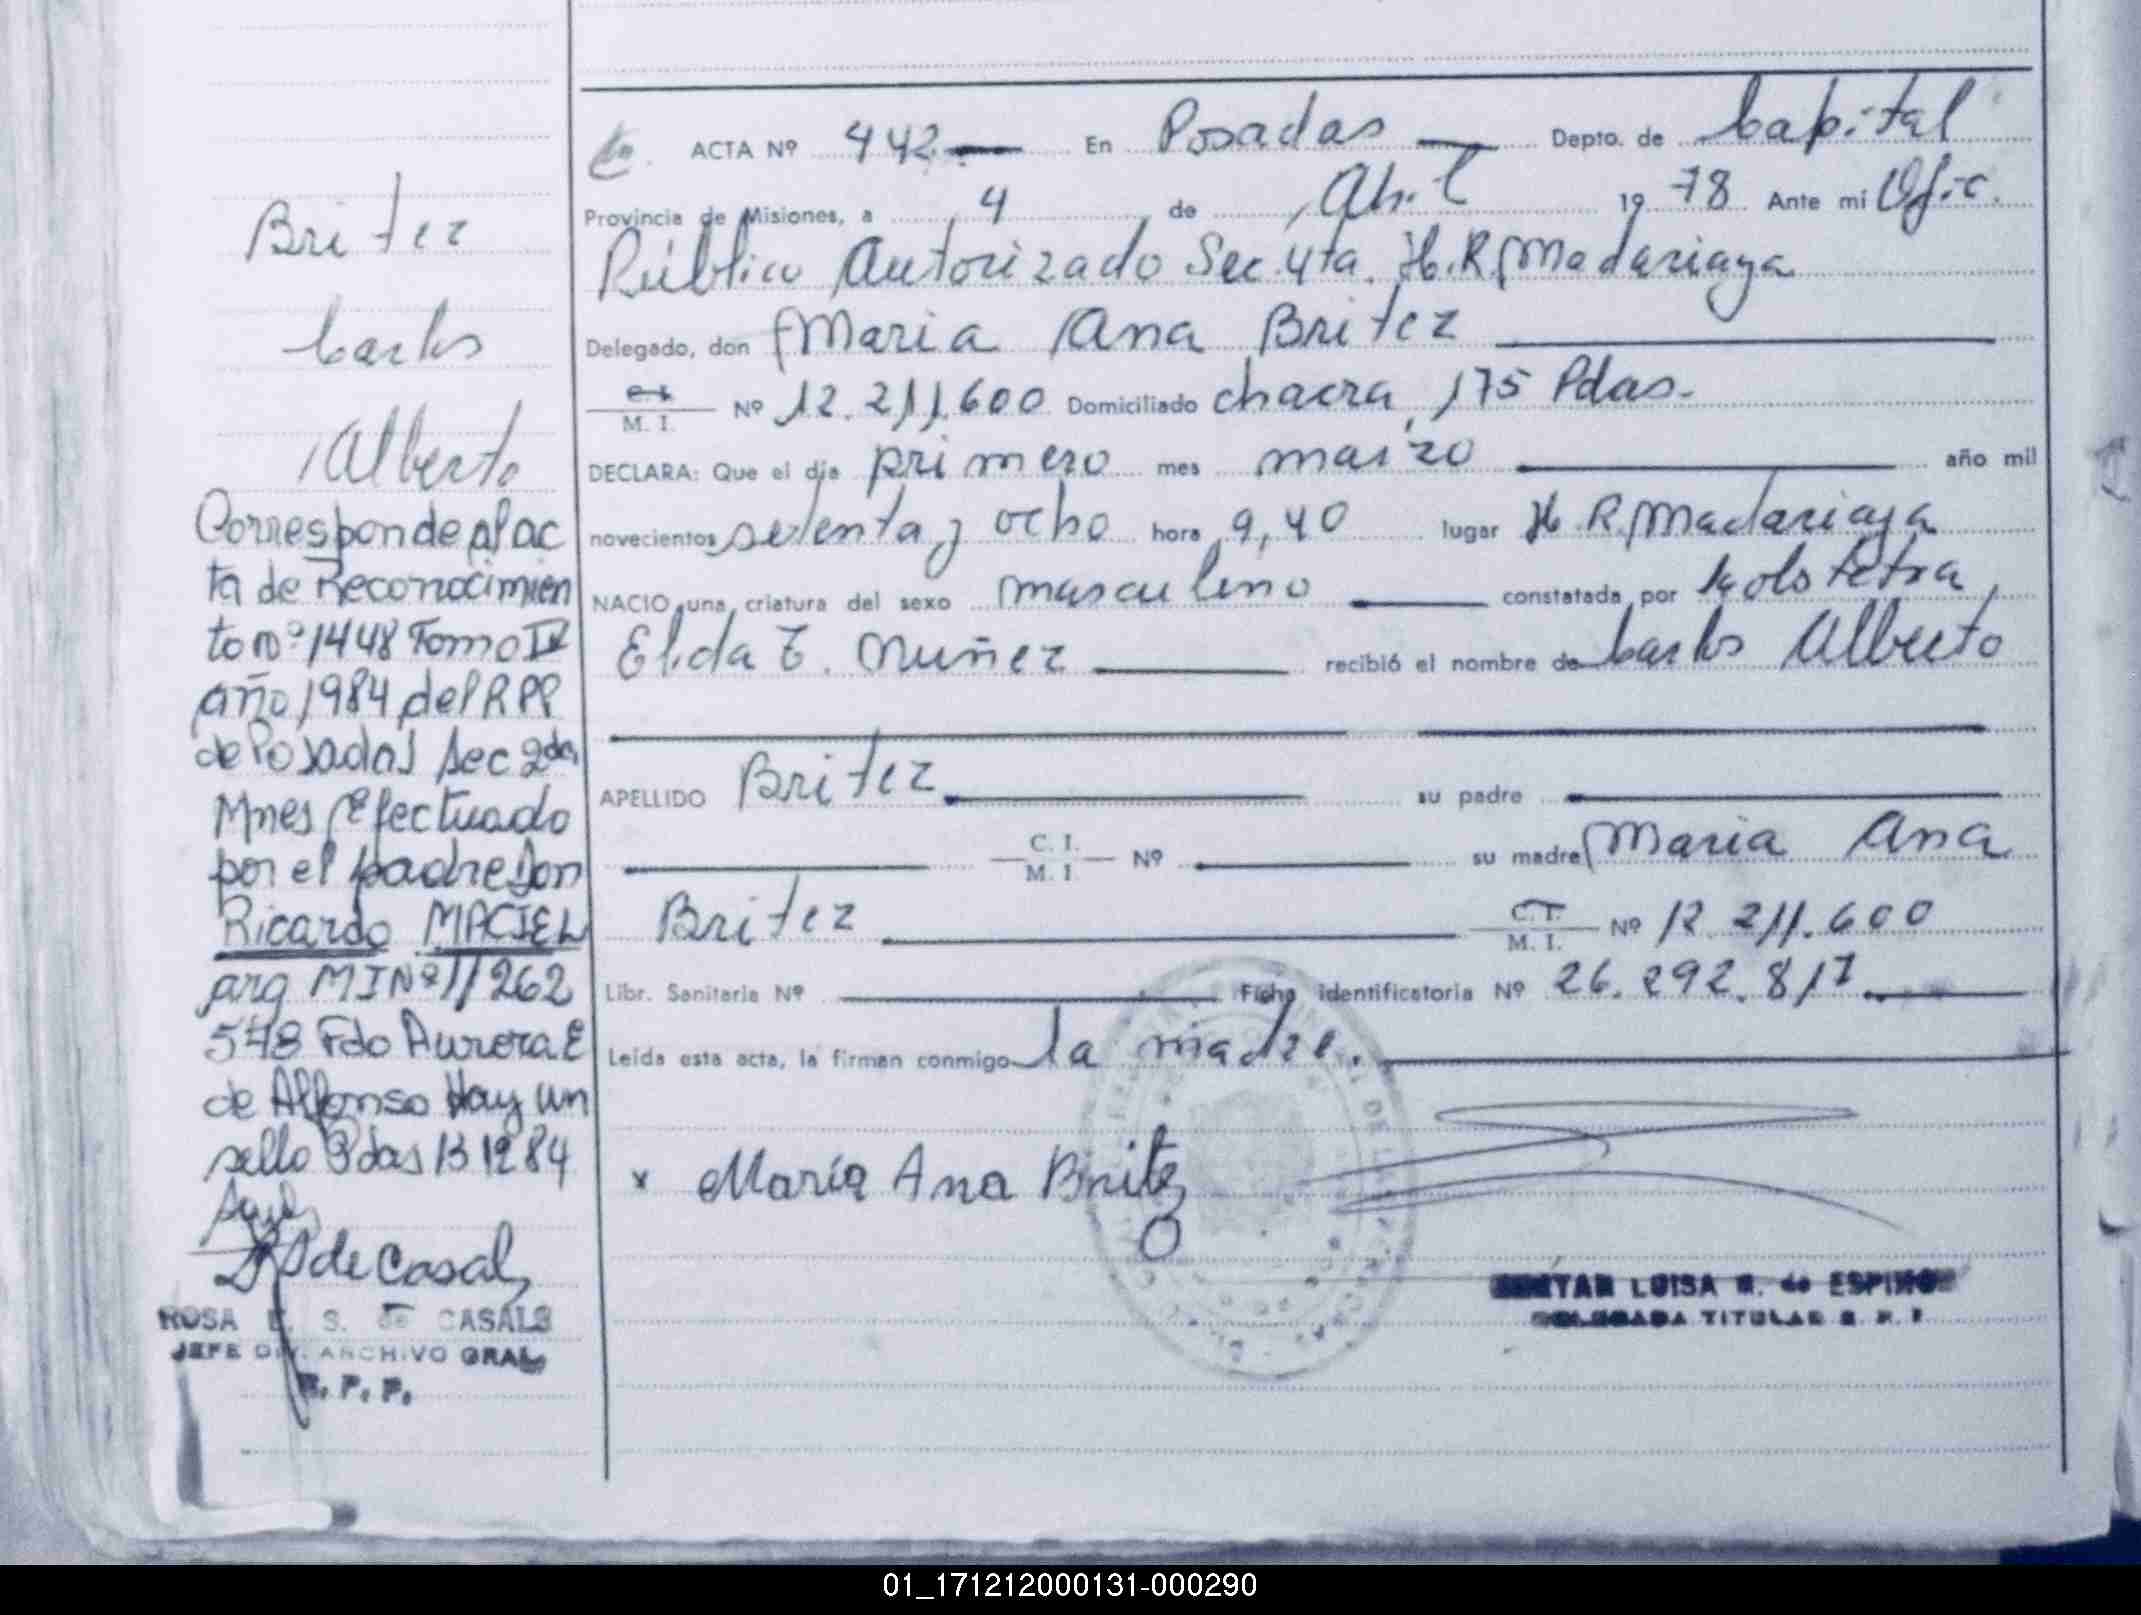 Britez
Carlos
Alberto
Corresponde al ac
ta de Reconocimien
to nº 1448 Tomo IV
año 1984 del RPP
de Posadas Sec 2da
Mnes Efectuado
por el padre Don
Ricardo MACIEL
arg MI Nº 11262
578 Fdo Aurora E
de Alfonso Hay un
sello Pdas 13 12 84
de Casals
ROSA E. S. de CASALS
JEFE DIV. ARCHIVO GRAL
R. P. P.
ACTA Nº 442 En Posadas Depto. de Capital
Provincia de Misiones, a 4 de Abril 1978 Ante mi Ofic.
Público Autorizado Sec. 4ta. H. R. Madariaga
Delegado, don Maria Ana Britez
C.I. M. I. Nº 12.211.600 Domiciliado chacra 175 Pdas.
DECLARA: Que el día primero mes marzo año mil
novecientos setenta y ocho hora 9,40 lugar H. R. Madariaga
NACIO una criatura del sexo masculino constatada por
Elida E. Nuñez recibió el nombre de Carlos Alberto
APELLIDO Britez su padre
C. I. M. I. Nº su madre Maria Ana
Britez C.I. M. I. Nº 12.211.600
Libr. Sanitaria Nº Ficha identificatoria Nº 26.292.817
Leída esta acta, la firman conmigo la madre.
x María Ana Britez
LUISA R. de ESPINOZ
DELEGADA TITULAR R. P. P.
01_171212000131-000290